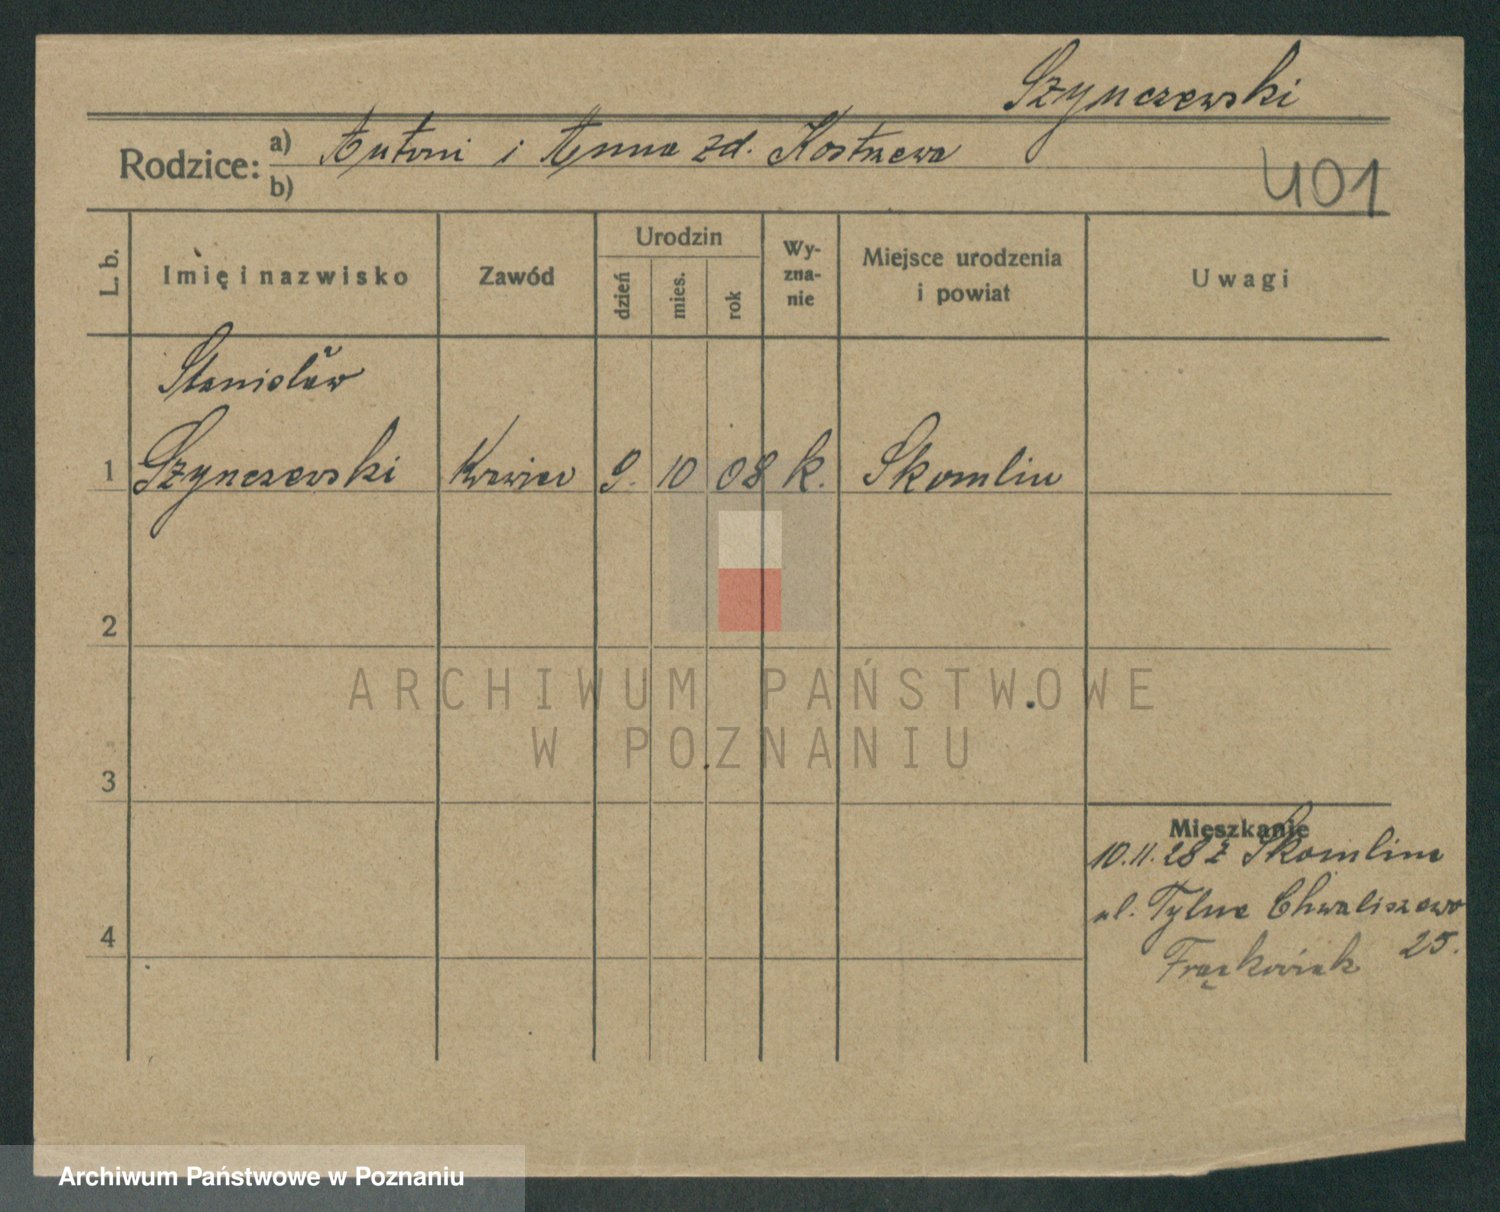 Szynczewski
Rodzice: a) Antoni i Anna zd. Kostrzewa
b)
401
L. b.
Imię i nazwisko
Zawód
Urodzin
dzień
mies.
rok
Wy-
zna-
nie
Miejsce urodzenia
i powiat
Uwagi
Stanisław
1 Szynczewski Krawiec 9. 10 08 k. Skomlin
2
3
4
Mieszkanie
10.11.28 z Skomlina
ul. Tylne Chwaliszewo
25.
Frąckowiak
ARCHIWUM PAŃSTWOWE
W POZNANIU
Archiwum Państwowe w Poznaniu